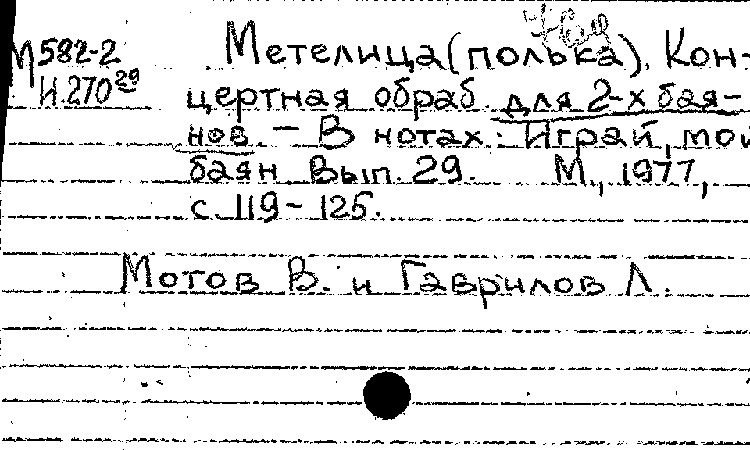 М582-2
И.270 29
Метелица (полька). Кон-
цертная обраб. для 2-х бая-
нов. – В нотах: Играй, мой
баян. Вып. 29. М., 1977,
с. 119-125.
Мотов В. и Гаврилов Л.